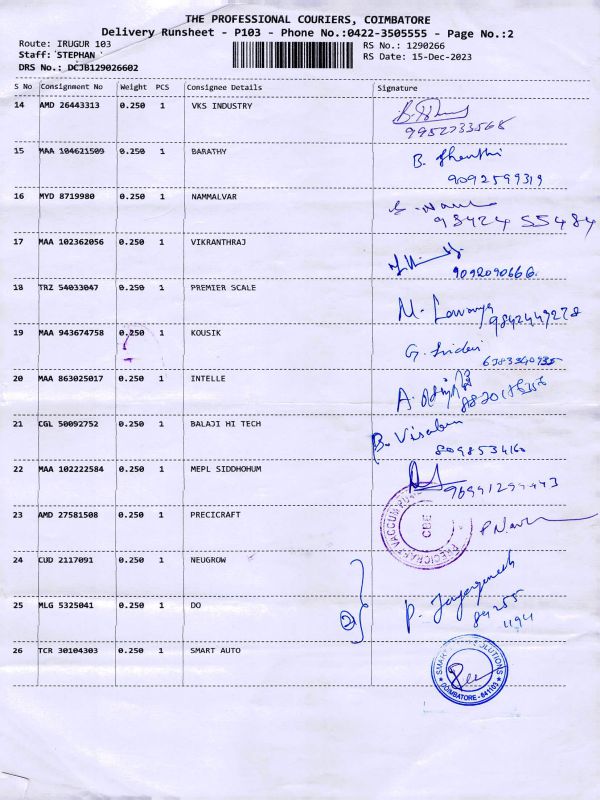 THE PROFESSIONAL COURIERS, COIMBATORE
Delivery Runsheet - P103 - Phone No.:0422-3505555 - Page No.:2
Route: IRUGUR 103
RS No.: 1290266
Staff: STEPHAN
RS Date: 15-Dec-2023
DRS No.: DCJB129026602
S No Consignment No Weight PCS Consignee Details Signature
14 AMD 26443313 0.250 1 VKS INDUSTRY
9952733568
15 MAA 104621509 0.250 1 BARATHY B. Shanthi
9092599319
16 MYD 8719980 0.250 1 NAMMALVAR
98424 55484
17 MAA 102362056 0.250 1 VIKRANTHRAJ
9092090666
18 TRZ 54033047 0.250 1 PREMIER SCALE M. Lavanya
9842449278
19 MAA 943674758 0.250 1 KOUSIK G. Sridevi
20 MAA 863025017 0.250 1 INTELLE A.
21 CGL 50092752 0.250 1 BALAJI HI TECH B.
8098534160
22 MAA 102222584 0.250 1 MEPL SIDDHOHUM
23 AMD 27581508 0.250 1 PRECICRAFT
PRECICRAFT VACCUM
CBE
24 CUD 2117091 0.250 1 NEUGROW
25 MLG 5325041 0.250 1 DO
2
P. Jayaganesh
89255
26 TCR 30104303 0.250 1 SMART AUTO
SMART SOLUTIONS
COIMBATORE - 641103